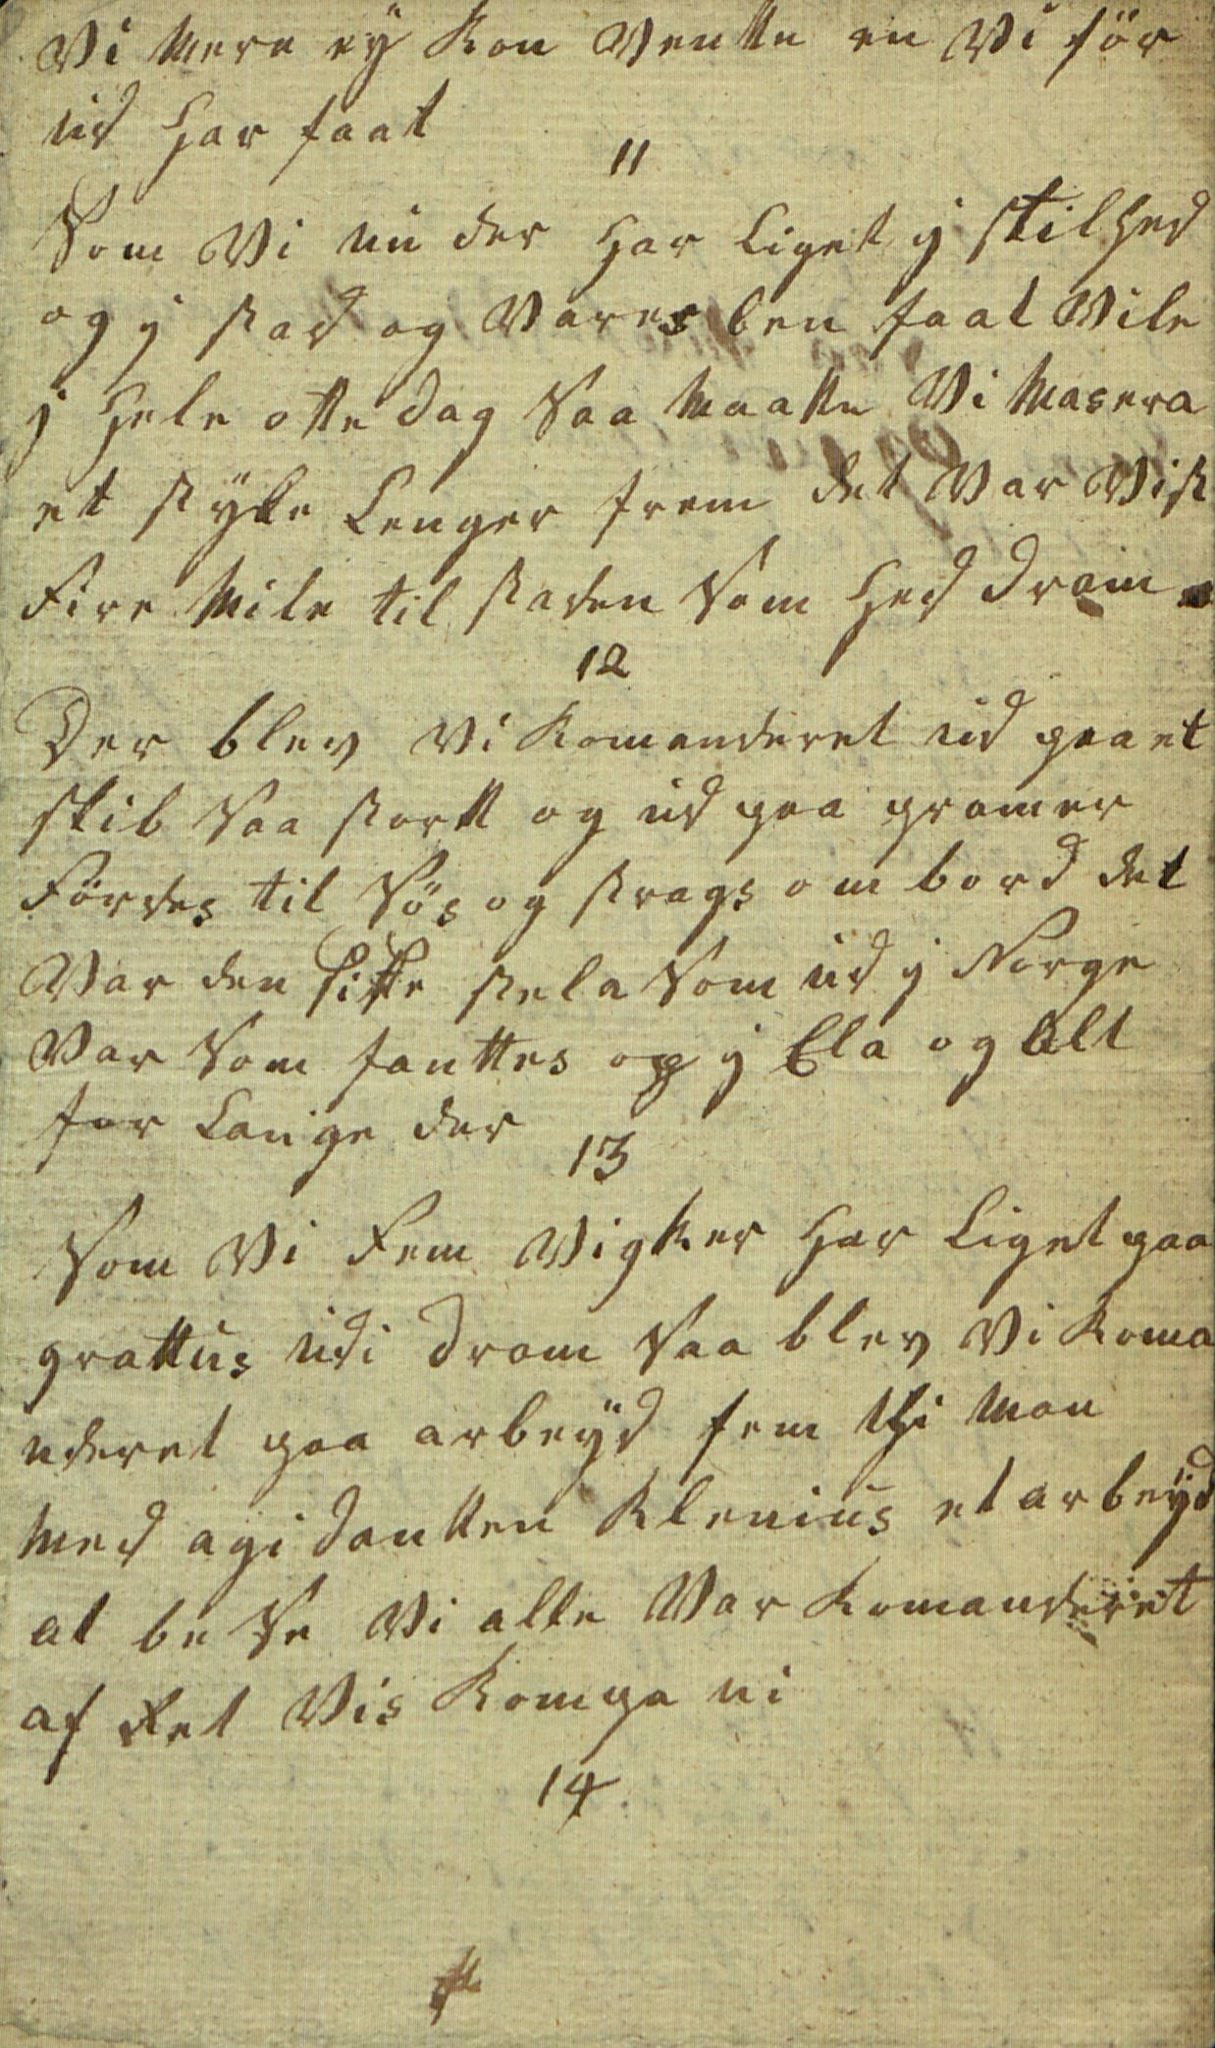 Vi mere ey Kan Ventte en Vi før
ud har faat
11
Som Vi nu der har Liget j stilhed
og j stad og Vores ben faat Vile
j hele otte dag Saa maatte Vi Masera
et styke Lenger frem det Var Vist
Fire mile til staden Som hed dram
12
Der blev Vi Komanderet ud paa et
skib Saa stortt og ud paa pramer
Førdes til Søs og strags om bord det
Var den sitste stela Som ud j Norge
Var Som fanttes op j Ela og alt
for Lange der
13
Som Vi Fem Vigker har Liget paa
grattus udi dram Saa blev Vi Koma
nderet paa arbeyd fem thi man
med agidantten Klenius et arbeyd
at be Se Vi alle Var Komanderet
af Ret Vis Kompa ni
14